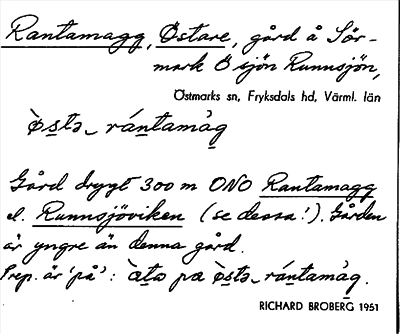 Rantamagg, Östare, gård å Sör-
mark Ö sjön Runnsjön,
Östmarks sn, Fryksdals hd, Värml. län
ø̀sta_ rántamàg
Gård drygt 300 m ONO Rantamagg
el. Runnsjöviken (se dessa!). Gården
är yngre än denna gård.
Prep. är 'på': àta pa ø̀sta_ rántamàg.
RICHARD BROBERG 1951